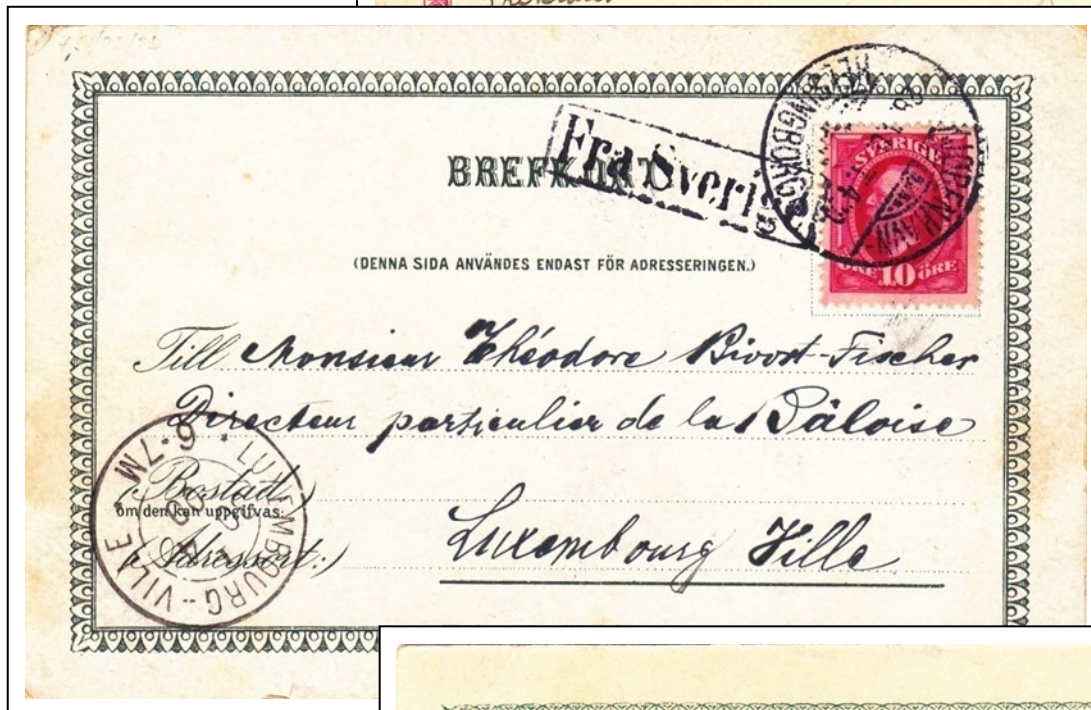 BREFKORT
Fra Sverig
SVERIGE
ÖRE 10 ÖRE
HELSINGBORG
(DENNA SIDA ANVÄNDES ENDAST FÖR ADRESSERINGEN.)
Till Monsieur Théodore Bivort-Fischer
Directeur particulier de la Bâloise
(Bostad)
om den kan uppgifvas.
Adressort:)
Luxembourg Ville
LUXEMBOURG-VILLE
6-7M